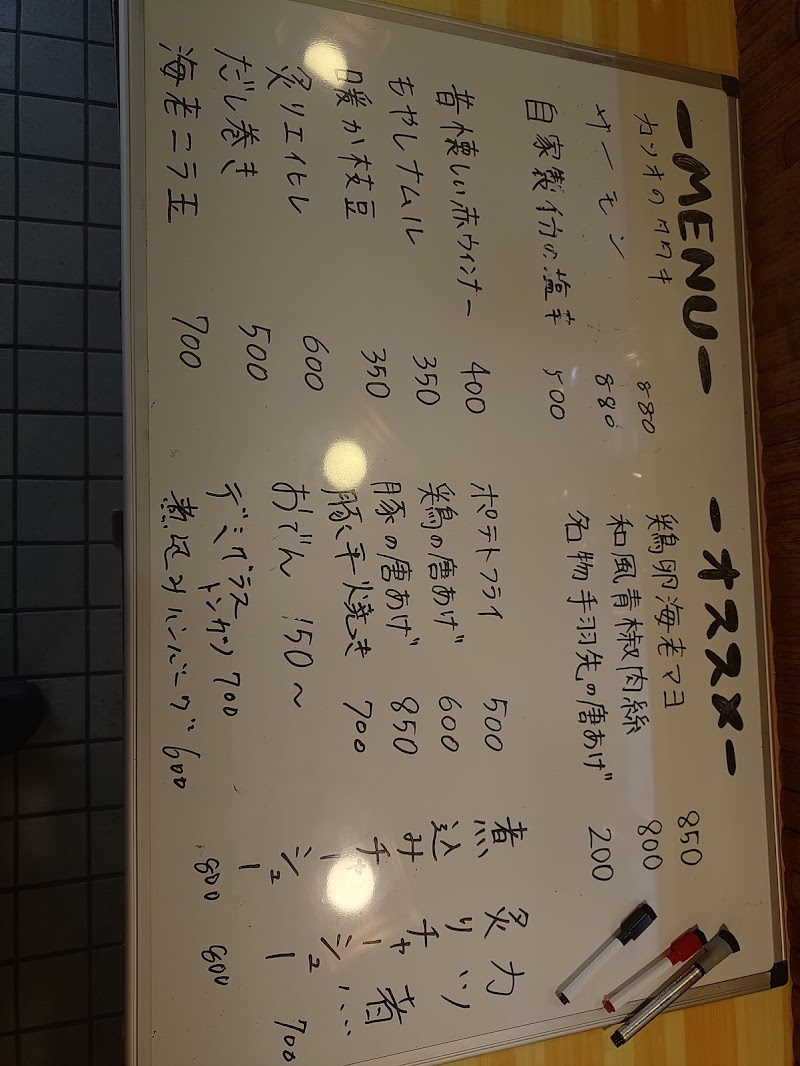 ーMENUー
カツオのタタキ 880
サーモン 880
自家製イカの塩辛 500
昔懐しい赤ウインナー 400
もやしナムル 350
暖か枝豆 350
炙りエイヒレ 600
だし巻き 500
海老ニラ玉 700
ーオススメー
鶏卵海老マヨ 850
和風青椒肉絲 800
名物手羽先の唐あげ 200
ポテトフライ 500
鶏の唐あげ 600
豚の唐あげ 850
豚平焼き 700
おでん 150〜
デミグラス
トンカツ 700
煮込みハンバーグ 600
カツ煮 700
炙りチャーシュー 800
煮込みチャーシュー 800